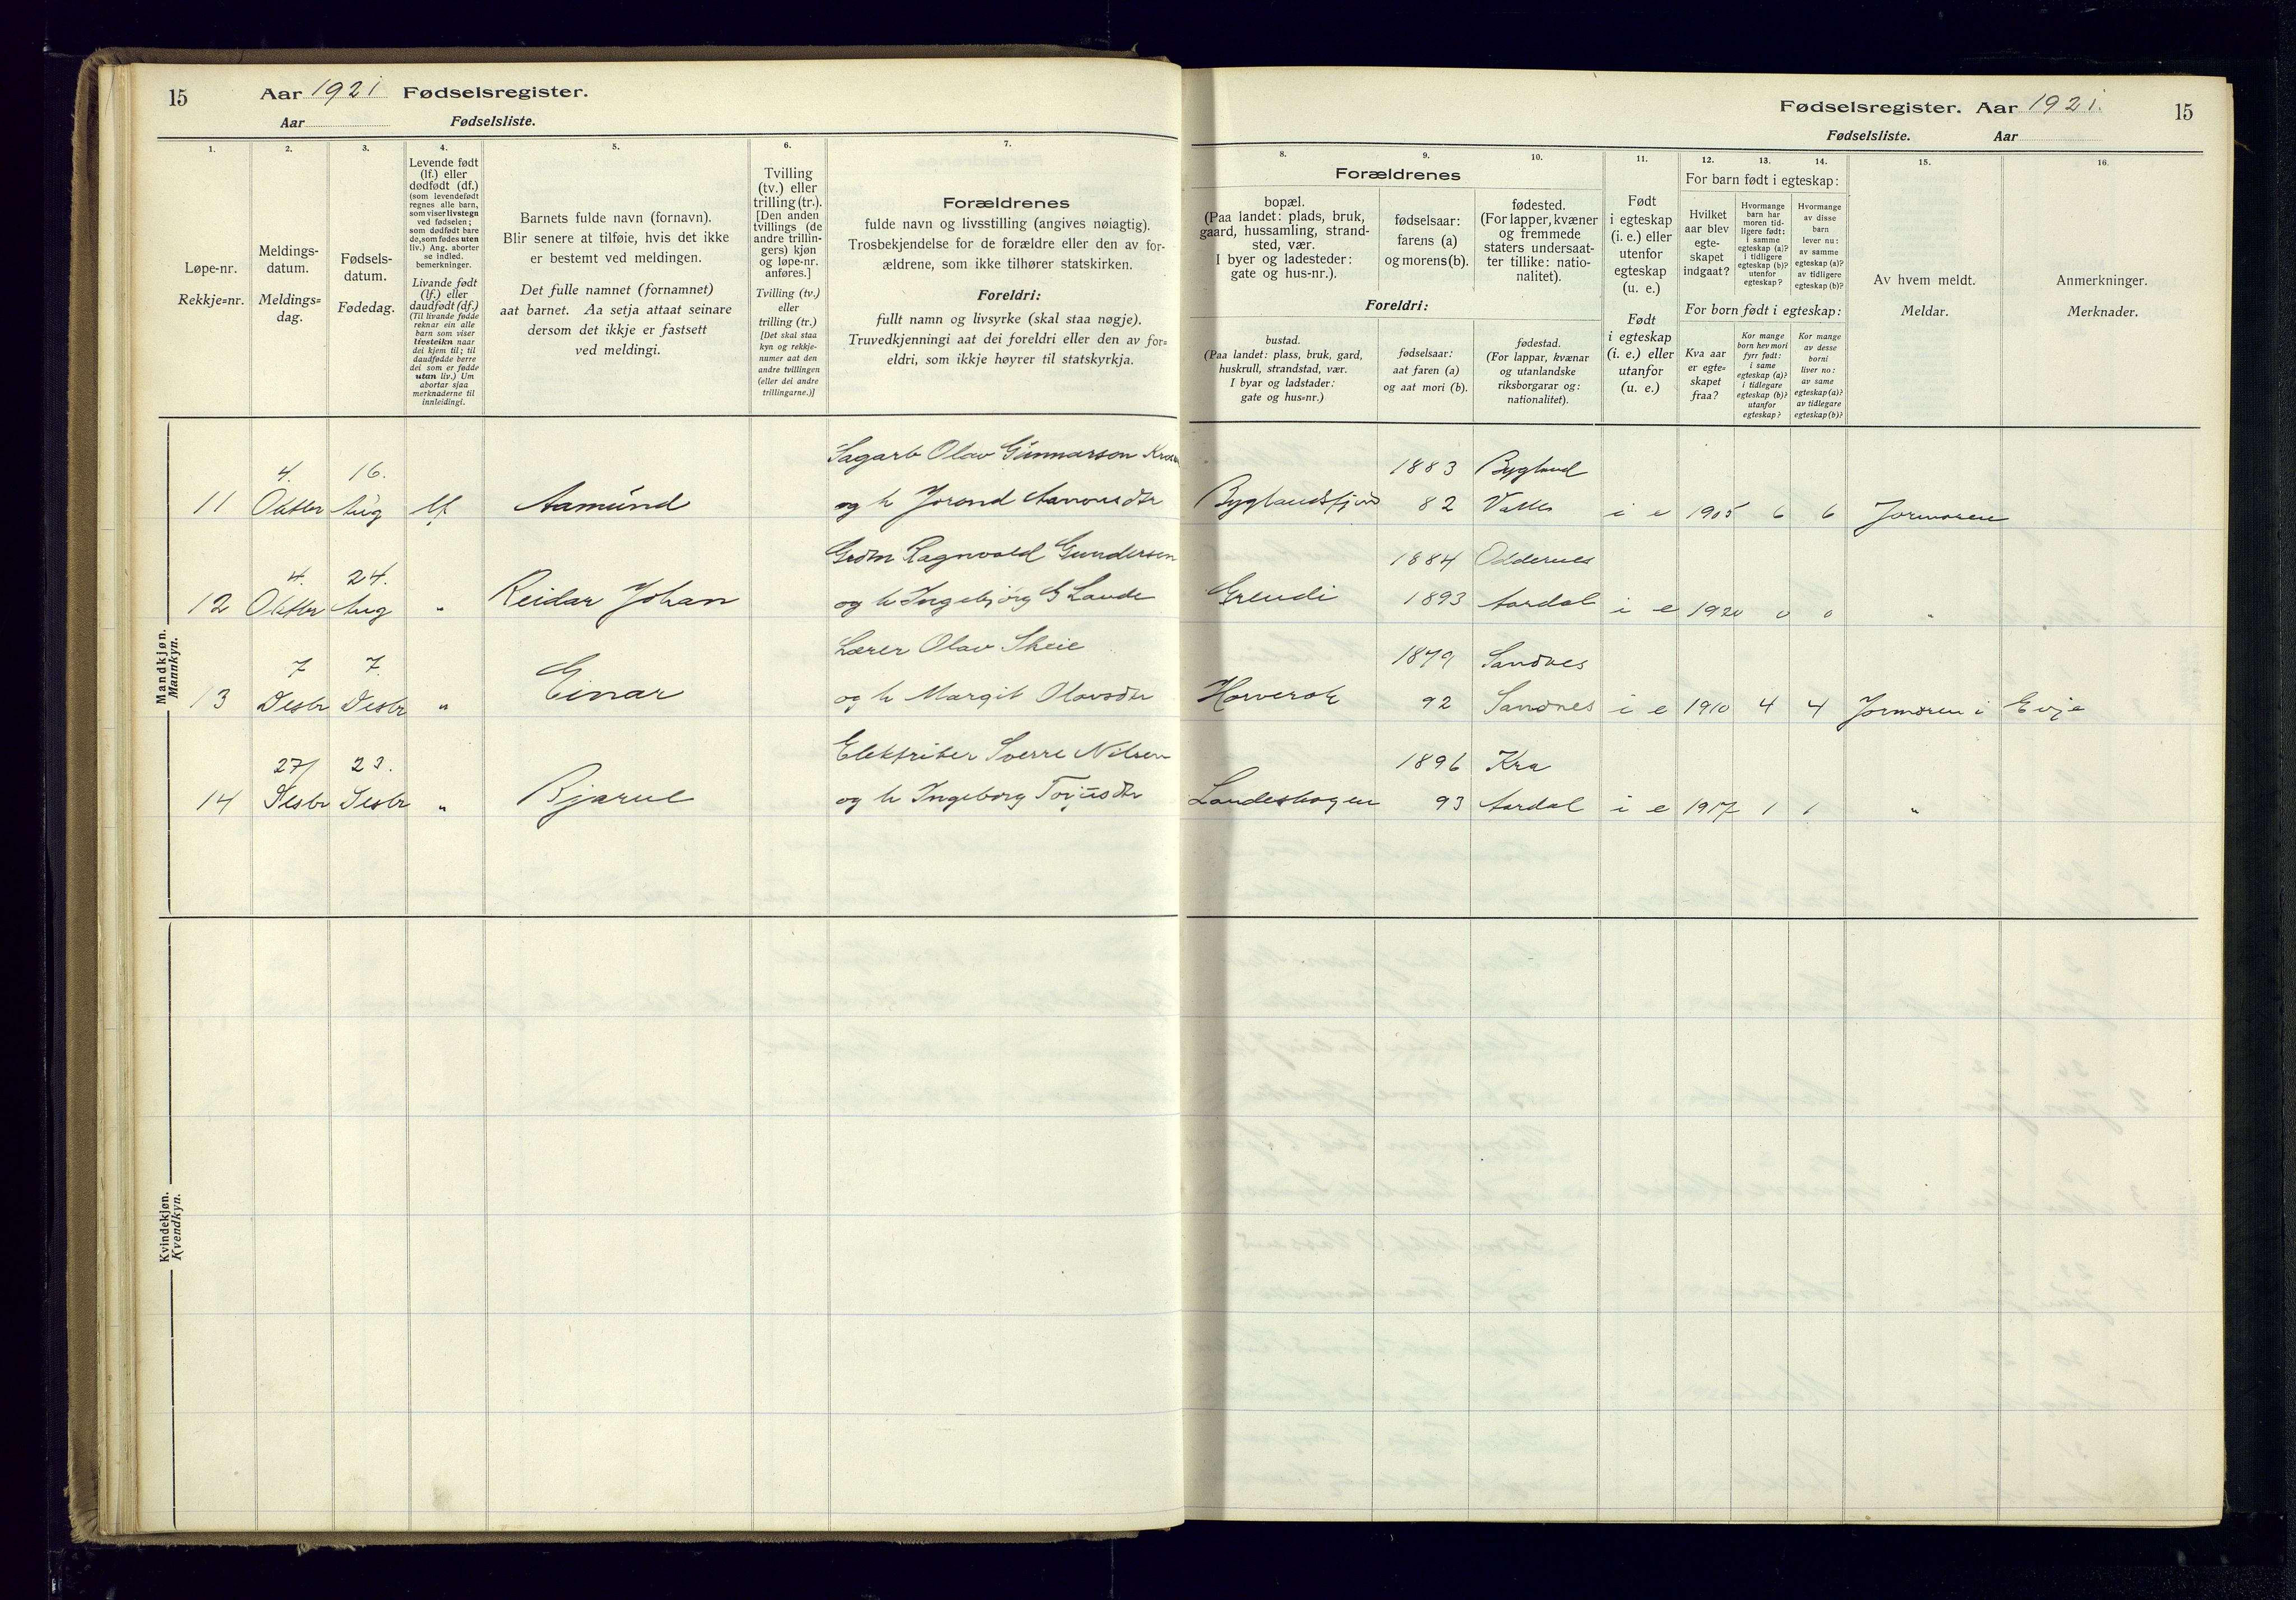 15 Aar 1921 Fødselsregister.
Aar Fødselsliste.
1.
Løpe-nr.
Rekkje=nr.
2.
Meldings-
datum.
Meldings=
dag.
3.
Fødsels-
datum.
Fødedag.
4.
Levende født
(lf.) eller
dødfødt (df.)
(som levendefødt
regnes alle barn,
som viser livstegn
ved fødselen;
som dødfødt bare
de, som fødes uten
liv.) Ang. aborter
se indled.
bemerkninger.
Livande født
(lf.) eller
daudfødt (df.)
(Til livande fødde
reknar ein alle
barn som viser
livsteikn naar
dei kjem til; til
daudfødde berre
dei som er fødde
utan liv.) Um
abortar sjaa
merknaderne til
innleidingi.
5.
Barnets fulde navn (fornavn).
Blir senere at tilføie, hvis det ikke
er bestemt ved meldingen.
Det fulle namnet (fornamnet)
aat barnet. Aa setja attaat seinare
dersom det ikkje er fastsett
ved meldingi.
6.
Tvilling
(tv.) eller
trilling (tr.).
[Den anden
tvillings (de
andre trillin-
gers) kjøn
og løpe-nr.
anføres.]
Tvilling (tv.)
eller
trilling (tr.)
[Det skal staa
kyn og rekkje-
numer aat den
andre tvillingen
(eller dei andre
trillingarne.)]
7.
Forældrenes
fulde navn og livsstilling (angives nøiagtig).
Trosbekjendelse for de forældre eller den av for-
ældrene, som ikke tilhører statskirken.
Foreldri:
fullt namn og livsyrke (skal staa nøgje).
Truvedkjenningi aat dei foreldri eller den av for=
eldri, som ikkje høyrer til statskyrkja.
Mandkjøn.
Mannkyn.
4. 16. Sagarb Olav Gunnarson
11 Oktbr Aug lf Aamund og h Jorend Aanonsdtr
4. 24. Grdm Ragnvald Gundersen
12 Oktbr Aug " Reidar Johan og h Ingebjørg G Lande
7 7. Lærer Olav Skeie
13 Desbr Desbr " Einar og h Margit Olavsdtr
27/ 23. Elektriker Sverre Nilsen
14 Desbr Desbr " Bjarne og h Ingeborg Torjusdtr
Kvindekjøn.
Kvendkyn.
Fødselsregister. Aar 1921. 15
Fødselsliste. Aar
8.
Forældrenes
bopæl.
(Paa landet: plads, bruk,
gaard, hussamling, strand-
sted, vær.
I byer og ladesteder:
gate og hus-nr.).
9.
fødselsaar:
farens (a)
og morens (b).
10.
fødested.
(For lapper, kvæner
og fremmede
staters undersaat-
ter tillike: natio-
nalitet).
Foreldri:
bustad.
(Paa landet: plass, bruk, gard,
huskrull, strandstad, vær.
I byar og ladstader:
gate og hus=nr.)
fødselsaar:
aat faren (a)
og aat mori (b).
fødestad.
(For lappar, kvænar
og utanlandske
riksborgarar og:
nationalitet).
11.
Født
i egteskap
(i. e.) eller
utenfor
egteskap
(u. e.)
Født
i egteskap
(i. e.) eller
utanfor
(u. e.)
12. 13. 14.
For barn født i egteskap:
Hvilket
aar blev
egte-
skapet
indgaat?
Hvormange
barn har
moren tid-
ligere født:
i samme
egteskap (a)?
i tidligere
egteskap (b)?
utenfor
egteskap?
Hvormange
av disse
barn
lever nu:
av samme
egteskap (a)?
av tidligere
egteskap (b)?
For born født i egteskap:
Kva aar
er egte=
skapet
fraa?
Kor mange
born hev mori
fyrr født:
i same
egteskap (a)?
i tidlegare
egteskap (b)?
utanfor
egteskap?
Kor mange
av desse
borni
liver no:
av same
egteskap (a)?
av tidlegare
egteskap (b)?
15.
Av hvem meldt.
Meldar.
16.
Anmerkninger.
Merknader.
1883 Bygland
Byglandsfjord 82 Valle i e 1905 6 6 Jormoren
1884 Oddernes
Grendi 1893 Aardal i e 1920 0 0 "
1879 Sandnes
92 Sandnes i e 1910 4 4 Jormoren i Evje
1896 Kra
Landeskogen 93 Aardal i e 1917 1 1 "